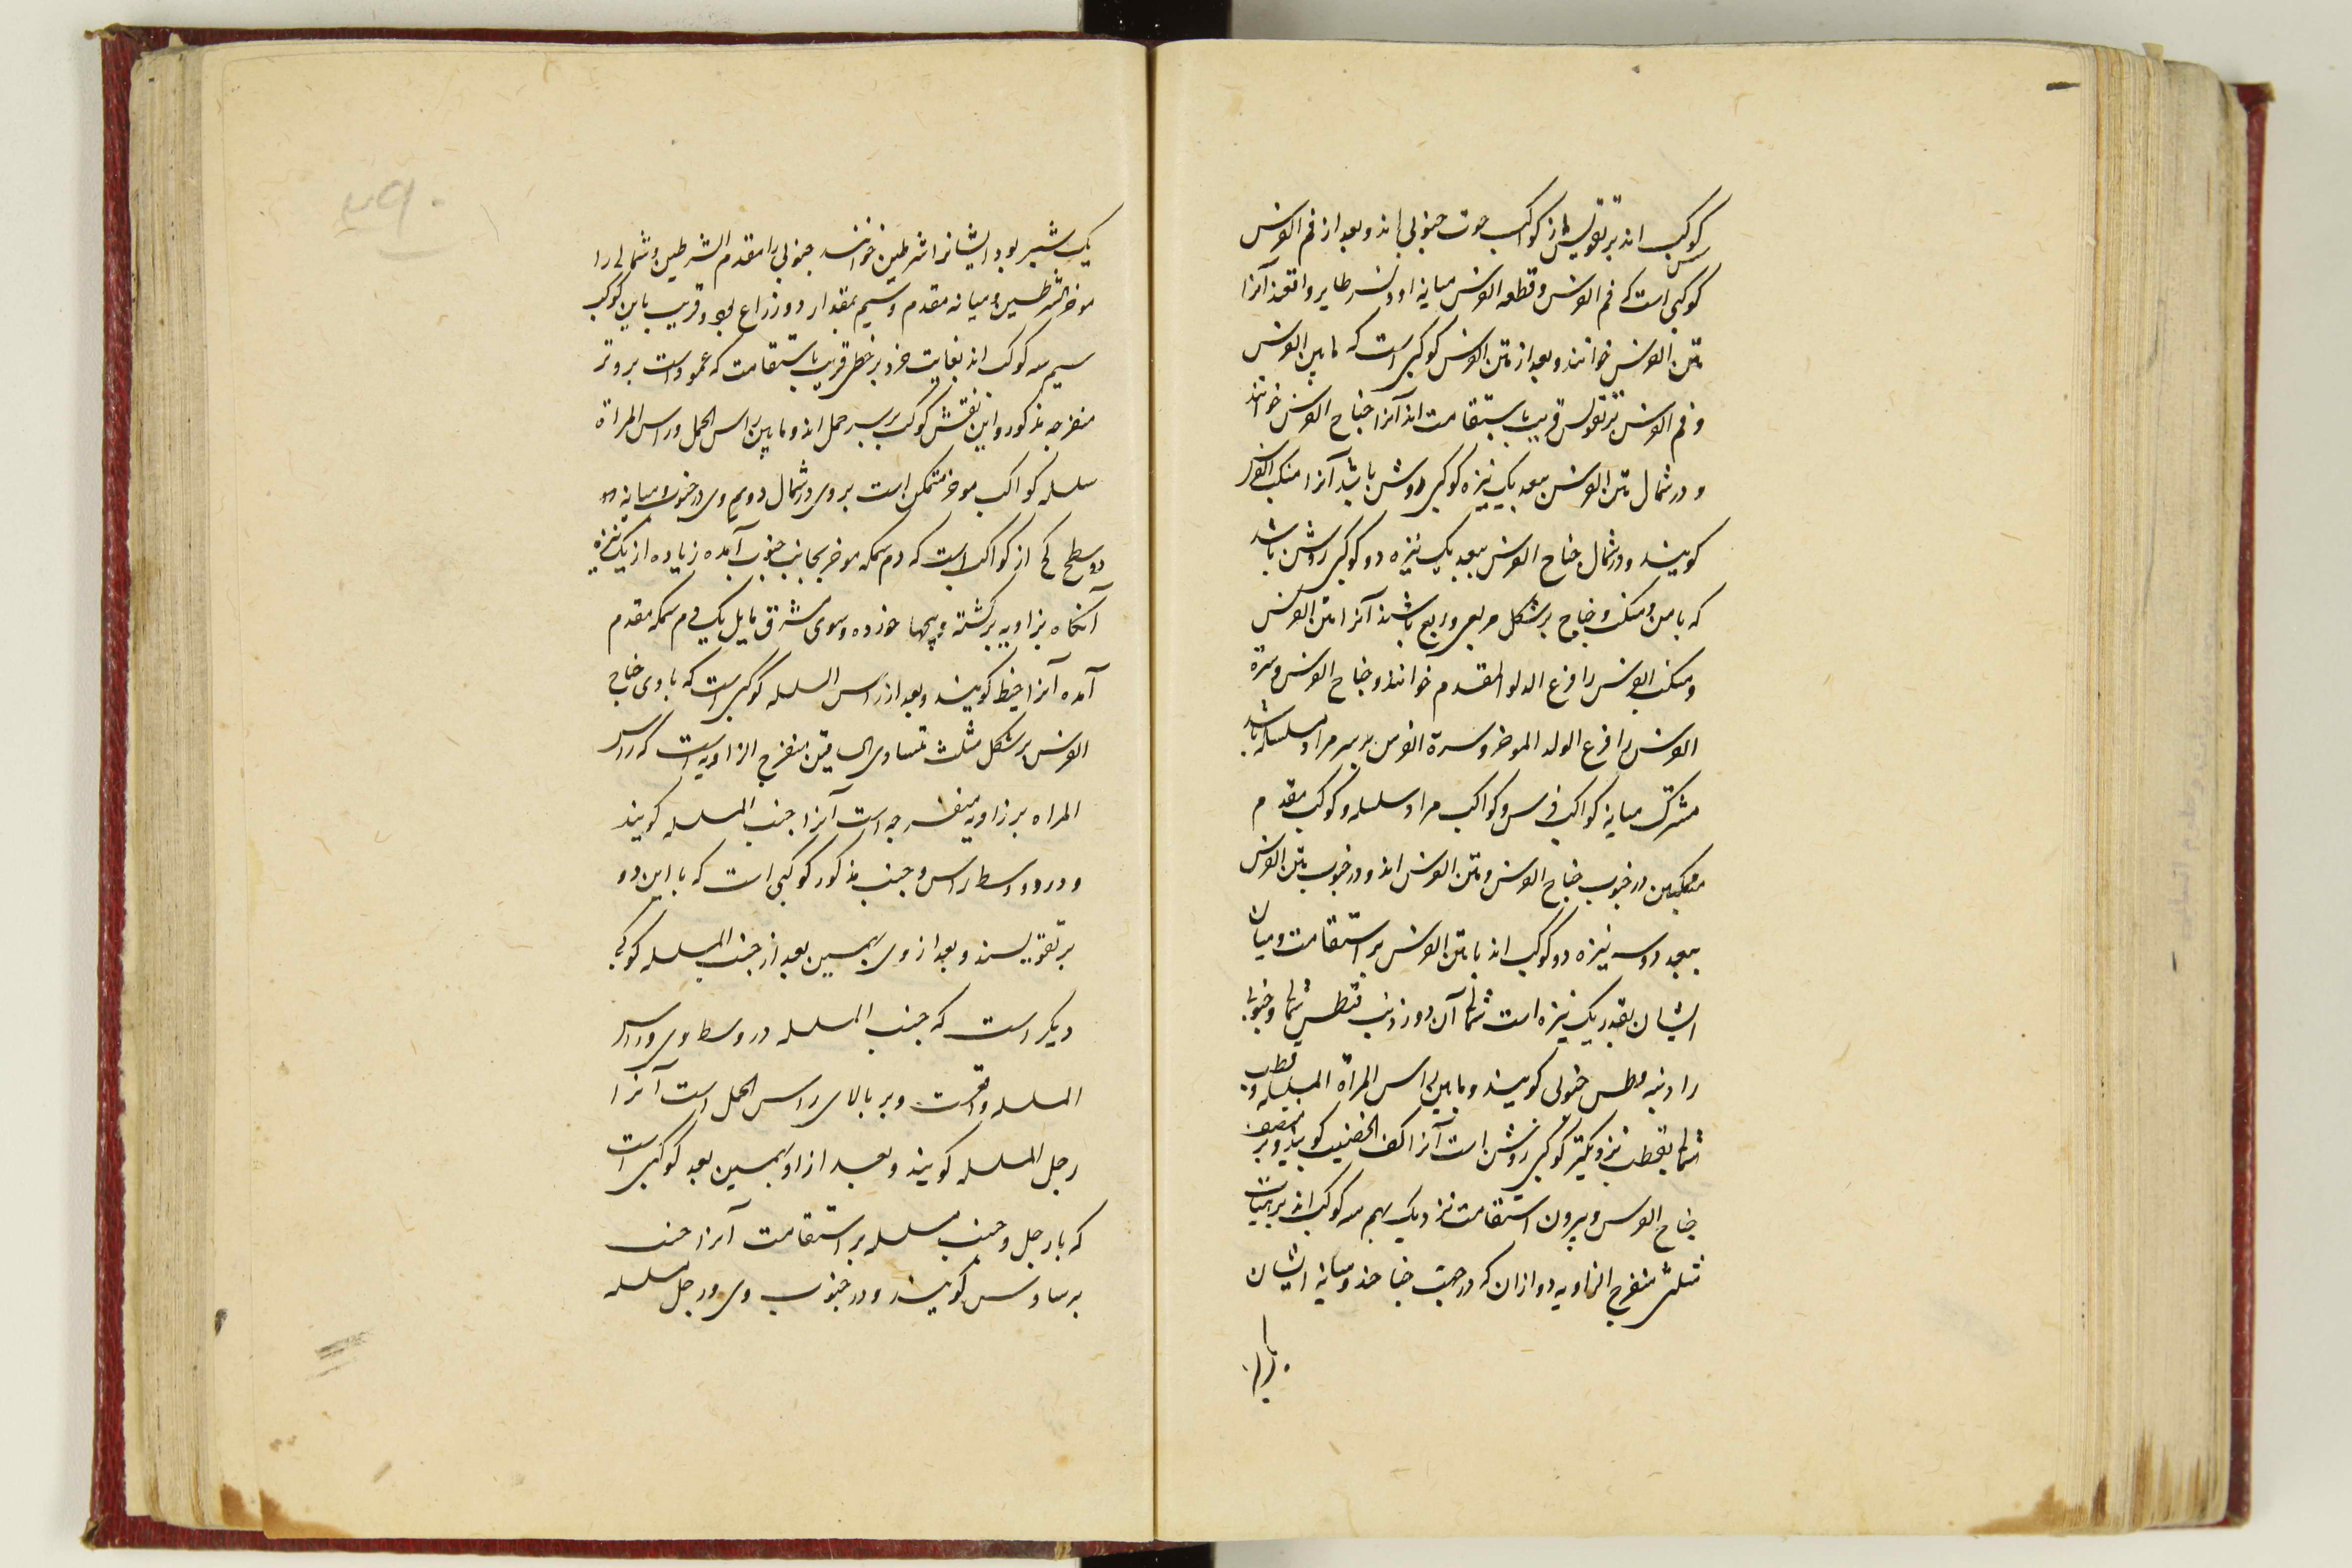 کوکب اند بر تقویس از کواکب حوت جنوبی اند و بعد از فم الفرس
کوکبی است که فم الفرس و قطعه الفرس میانه او و نسر طایر واقعند آنرا
متن الفرس خوانند و بعد از متن الفرس کوکبی است که مابین الفرس
و فم الفرس بر تقویس قریب باستقامت اند آنرا جناح الفرس خوانند
و در شمال متن الفرس ببعد یک نیزه کوکبی روشن باشد آنرا منکب الفرس
کویند و در شمال جناح الفرس ببعد یک نیزه دو کوکبی روشن باشد
که با متن و منکب و جناح بر شکل مربعی واقع باشند آنرا متن الفرس
و منکب الفرس را فرع الدلو المقدم خوانند و جناح الفرس و سرة
الفرس را فرع الولد الموخر و سرة الفرس بر سر مراه مسلسله باشد
مشترک میانه کواکب فرس و کواکب مراه مسلسله و کوکب مقدم
در جنوب جناح الفرس و متن الفرس اند و در جنوب متن الفرس
ببعد دو سه نیزه دو کوکب اند با متن الفرس بر استقامت و میان
ایشان بقدر یک نیزه است شمالی آن دو ذنب قیطس شمالی و جنوبی
را ذنب قیطس جنوبی کویند و مابین راس المراة المسلسله و قطب
شمالی بقطب نزدیکتر کوکبی روشن است آنرا کف الخضیب کویند و بر
جناح الفرس و بیرون استقامت نزدیک بهم سه کوکب اند بر هیات
مثلثی منفرج الزاویه دو ازان که در جهت جناحند و میانه ایشان
یک شبر بود ایشانرا شرطین خوانند جنوبی را مقدم الشرطین و شمالی را
موخر الشرطین و میانه مقدم و سیم بمقدار دو زراع بود و قریب باین کوکب
سیم سه کوکب اند بغایت خرد بر خطی قریب باستقامت که عمود است بر وتر
منفرجه مذکور و این شش کوکب بر سر حمل اند و مابین راس الحمل و راس المراة
سلسله کواکب موخر سمکین است بر وی در شمال دویم وی در جنوب و میانه دو
سطحی از کواکب است که دم سمکه موخر بجانب جنوب آمده زیاده از یک نیزه
آنکاه بزاویه برکشته و پیچها خورده و سوی مشرق مایل یک دم سمکه مقدم
آمده آنرا خیط کویند و بعد از راس المسلسله کوکبی است که با وی جناح
الفرس بر شکل مثلث متساوی الساقین منفرج الزاویه است که راس
المراه بر زاویه منفرجه است آنرا جنب المسلسله کویند
و در وسط راس و جنب مذکور کوکبی است که با این دو
بر تقویسند و بعد از وی بهمین بعد از جنب المسلسله کوکبی
دیکر است که جنب المسلسله در وسط وی و راس
المسلسله واقعست و بر بالای راس الحمل است آنرا
رجل المسلسله کویند و بعد از او بهمین بعد کوکبی است
که با رجل و جنب مسلسله بر استقامت آنرا جنب
برساوس کویند و در جنوب وی و رجل مسلسله